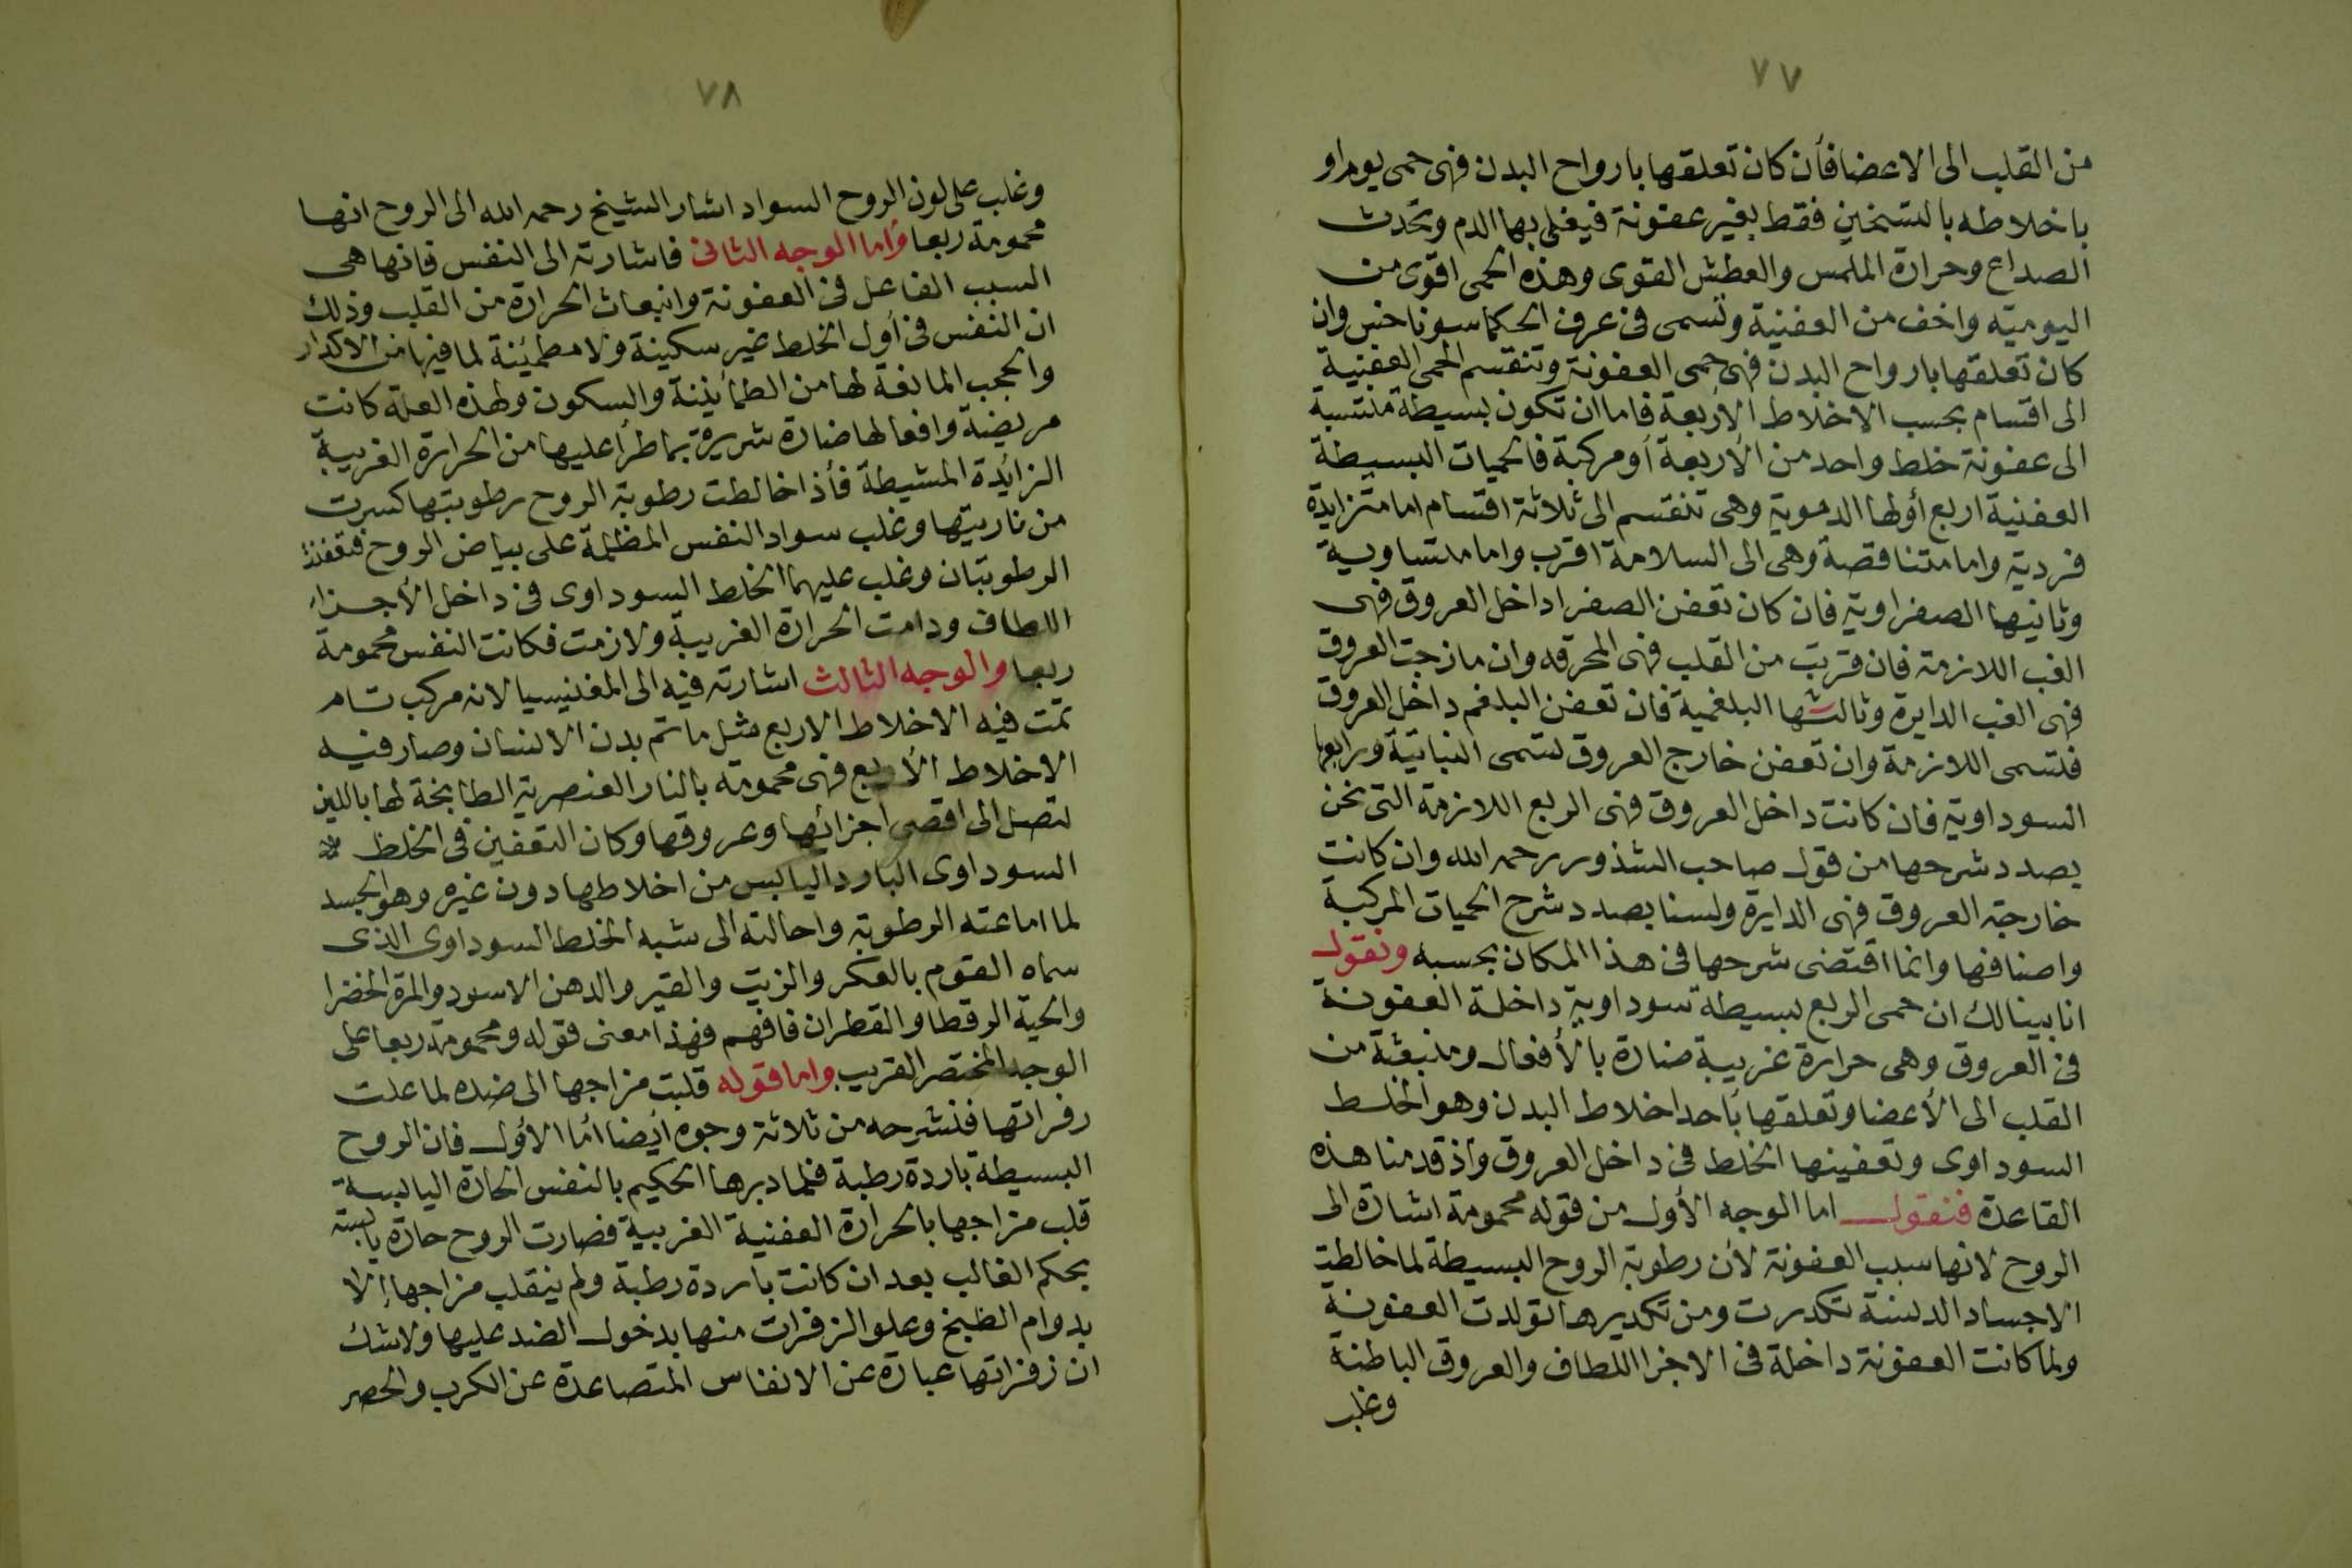 ٧٧
من القلب الى الاعضا فأن كان تعلقها بارواح البدن فهى حمى يوم او
باخلاطه بالتسخين فقط بغير عفونة فيغلى بها الدم وتحدث
الصداع وحرارة الملمس والعطش القوى وهذه الحمى اقوى من
اليوميه واخف من العفنية وتسمى فى عرف الحكما سوناخس وان
كان تعلقها بارواح البدن فهى حمى العفونة وتنقسم الحمى العفنية
الى اقسام بحسب الاخلاط الأربعة فاما ان تكون بسيطة منتسبة
الى عفونة خلط واحد من الأربعة أو مركبة فالحميات البسيطة
العفنية اربع أولها الدموية وهى تنقسم الى ثلاثة اقسام اما متزايدة
فردية واما متناقصة وهى الى السلامة اقرب واما متساوية
وثانيها الصفراوية فان كان تعفن الصفرا داخل العروق فهى
الغب اللازمة فان قربت من القلب فهى المحرقه وان ما زجت العروق
فهى الغب الدايرة وثالثها البلغمية فان تعفن البلغم داخل العروق
فتسمى اللازمة وان تعفن خارج العروق تسمى النباتية ورابعها
السوداوية فان كانت داخل العروق فهى الربع اللازمة التى نحن
بصدد شرحها من قول صاحب الشذور رحمه الله وان كانت
خارجة العروق فهى الدايرة ولسنا بصدد شرح الحميات المركبة
واصنافها وانما اقتضى شرحها فى هذا المكان بحسبه ونقول
انا بينا لك ان حمى الربع بسيطة سوداوية داخلة العفونة
فى العروق وهى حرارة غريبة ضارة بالأفعال ومنبعثة من
القلب الى الأعضا وتعلقها بأحد اخلاط البدن وهو الخلط
السوداوى وتعفينها الخلط فى داخل العروق وأذ قدمنا هذه
القاعدة فنقول اما الوجه الأول من قوله محمومة اشارة الى
الروح لانها سبب العفونة لأن رطوبة الروح البسيطة لما خالطت
الاجساد الدنسة تكدرت ومن تكديرها تولدت العفونة
ولما كانت العفونة داخلة فى الاجزا اللطاف والعروق الباطنة
وغلب
٧٨
وغلب على لون الروح السواد اشار الشيخ رحمه الله الى الروح انها
محمومة ربعا وأما الوجه الثانى فاشارته الى النفس فانها هى
السبب الفاعل فى العفونة وانبعاث الحرارة من القلب وذلك
ان النفس فى أول الخلط غير سكينة ولا مطمئنة لما فيها من الاكدار
والحجب المانعة لها من الطمأنينة والسكون ولهذه العلة كانت
مريضة وافعالها ضارة شريرة بما طرأ عليها من الحرارة الغريبة
الزائدة المشيطة فأذا خالطت رطوبة الروح برطوبتها كسرت
من ناريتها وغلب سواد النفس المظلمة على بياض الروح فتعفنت
الرطوبتان وغلب عليهما الخلط السوداوى فى داخل الأجزاء
اللطاف ودامت الحرارة الغريبة ولازمت فكانت النفس محمومة
ربعا والوجه الثالث اشارته فيه الى المغنيسيا لانه مركب تام
تمت فيه الاخلاط الاربع مثل ما تم بدن الانسان وصار فيه
الاخلاط الأربع فهى محمومة بالنار العنصرية الطابخة لها باللين
لتصل الى اقصى اجزائها وعروقها وكان التعفين فى الخلط
السوداوى البارد اليابس من اخلاطها دون غيره وهو الجسد
لما اماعته الرطوبة واحالته الى شبه الخلط السوداوى الذى
سماه القوم بالعكر والزيت والقير والدهن الاسود والمرة الخضرا
والحية الرقطا والقطران فافهم فهذا معنى قوله ومحمومة ربعا على
الوجه المختصر القريب واما قوله قلبت مزاجها الى ضده لما علت
زفراتها فنشرحه من ثلاثة وجوه أيضا أما الأول فان الروح
البسيطة باردة رطبة فلما دبرها الحكيم بالنفس الحارة اليابسة
قلب مزاجها بالحرارة العفنية الغريبة فصارت الروح حارة يابسة
بحكم الغالب بعد ان كانت باردة رطبة ولم ينقلب مزاجها إلا
بدوام الطبخ وعلو الزفرات منها بدخول الضد عليها ولا شك
ان زفراتها عبارة عن الانفاس المتصاعدة عن الكرب والحصر